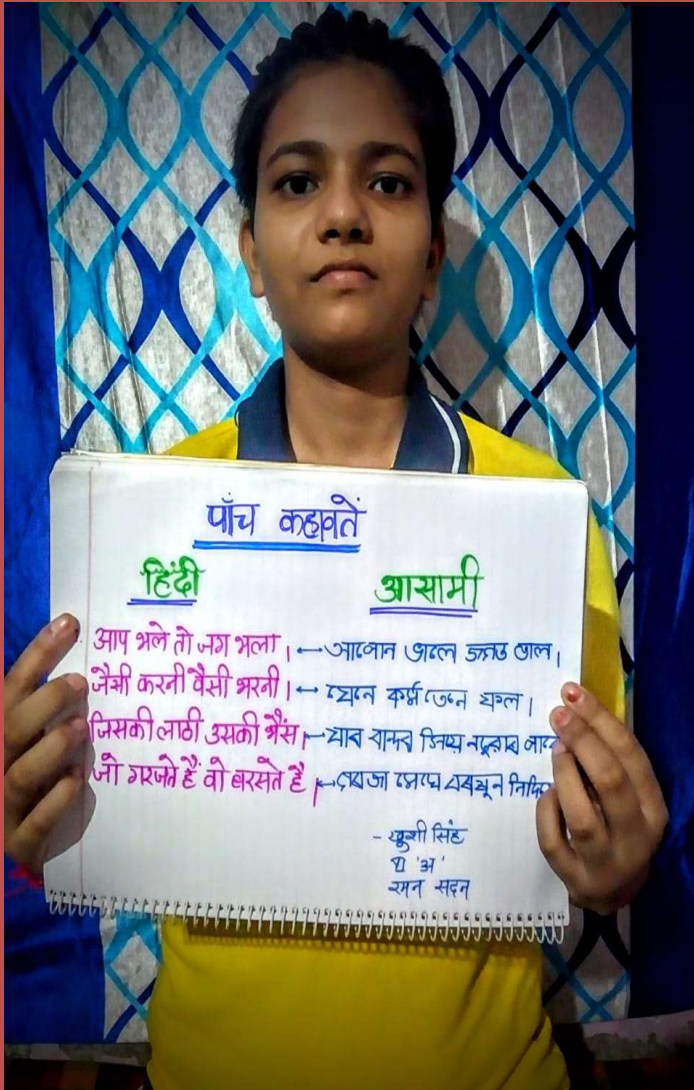 पाँच कहावतें
हिंदी आसामी
आप भले तो जग भला। ← আপোন ভালে জগত ভাল।
जैसी करनी वैसी भरनी। ← যেনে কৰ্ম তেনে ফল।
जिसकी लाठी उसकी भैंस। ← যাৰ
जो गरजते हैं वो बरसते है
- खुशी सिंह
'अ'
रमन सदन